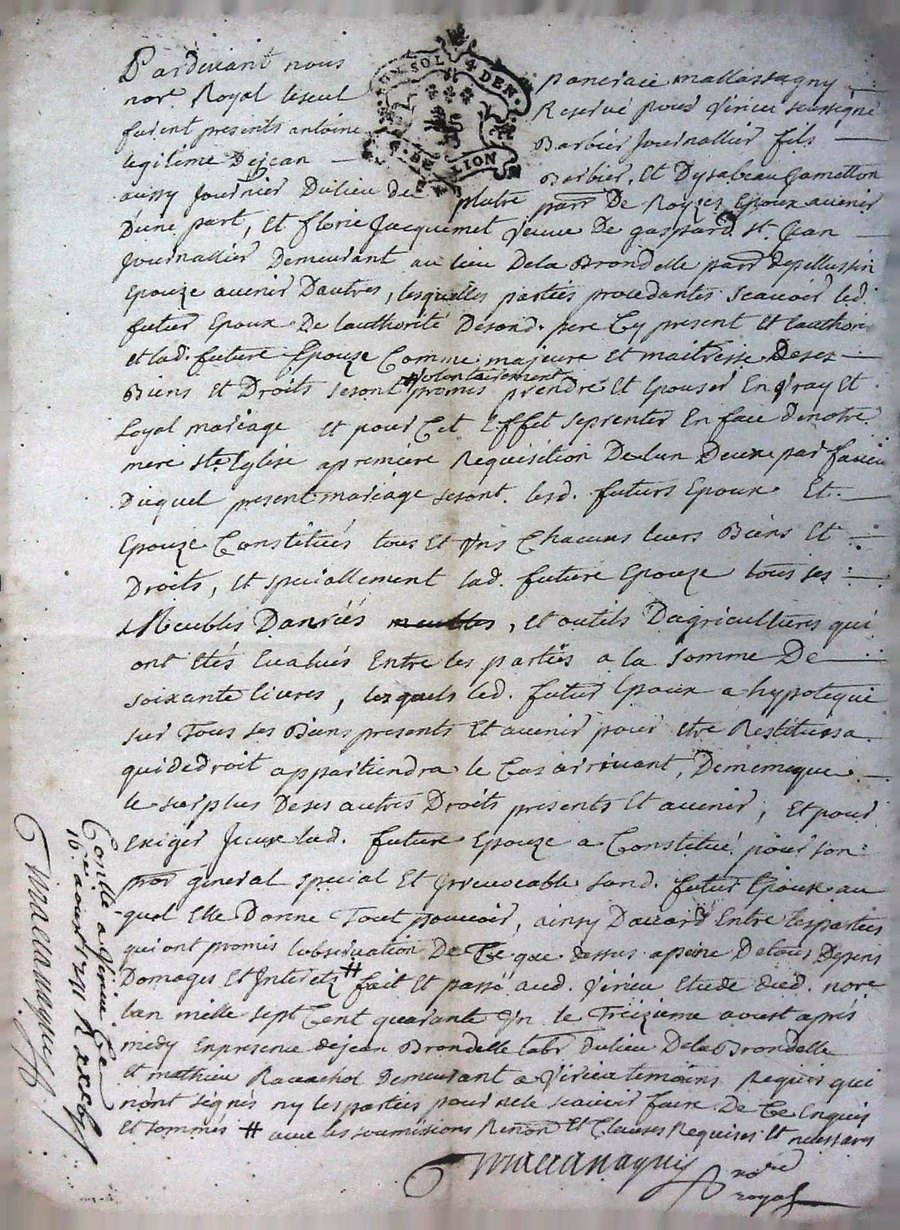 Pardevant nous pancrace mallassagny
nore. Royal seul Reservé pour Virieu soussigné
furent presents antoine Barbier Journallier fils
legitime Dejean Barbier, Et Dysabeau
aussy Journier Du lieu de platre parr. De Epoux avenir
D'une part, Et florie Jacquemet Veuve De gaspard St. Jean
Journallier Demeurant au lieu Dela Brondelle parr. depellussin
Epouze avenir Dautres, lesquelles parties procedantes Scavoir led.
futur Epoux De lauthorité Desond. pere Cy present Et
et lad. future Epouze Comme majeure et maitresse Deses
Biens et Droits sesont #volontairement promis prendre Et Epouser En Vray Et
Loyal mariage et pour Cet Effet seprenter En face denotre
mere Ste. Eglise apremiere Requisition Delun Deux par
Duquel present mariage sesont lesd. futurs Epoux Et
Epouze Constitués tous Et Uns Chacuns leurs Biens Et
Droits, Et speciallement lad. future Epouze tous ses
Meubles Danrées , Et outils Dagricultures qui
ont Etés Evalués Entre les parties a la Somme De
soixante livres, lesquels led. futur Epoux a hypotequé
sur Tous ses Biens presents Et avenir pour Etre Restitués a
quidedroit appartiendra le Cas arrivant, Dememeque
le surplus Deses autres Droits presents Et avenir, Et pour
Exiger Jceux lad. future Epouze a Constitué pour son
pror general special Et Jrrevocable sond. futur Epoux au
quel Elle Donne Tout pouvoir, ainsy Daccord Entre lesparties
qui ont promis lobservation De Ce que dessus apeine Detous Depens
Domages Et Interetz # fait Et passé aud. Virieu Etude dud. nore
lan mille sept Cent quarante Un le Treizieme aoust apres
medy Enpresence dejean Brondelle labr. Dulieu Dela Brondelle
et mathieu Ravachol demeurant a Virieu temoins Requis qui
n'ont signés ny les parties pour nele scavoir faire De Ce Enquis
Et sommés # avec les soumissions Renon. Et Clauses Requises Et necessaires
nore
royal
Conllé a Virieu Ce
16e. aoust 1741 R